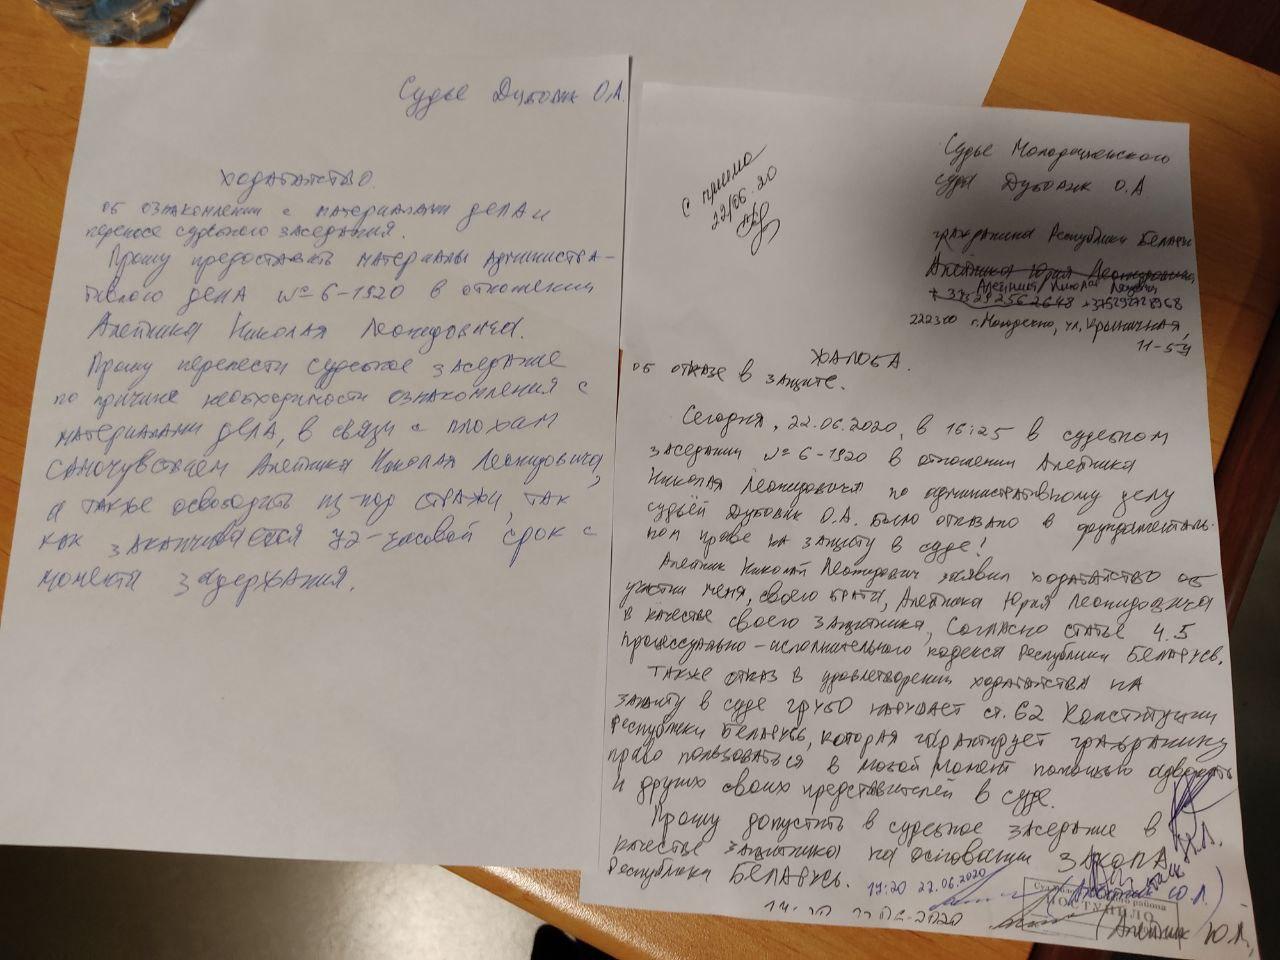 Судье Дубовик О.А.
ХОДАТАЙСТВО.
об ознакомлении с материалами дела и
переносе судебного заседания.
Прошу предоставить материалы администра-
тивного дела № 6-1920 в отношении
Алейника Николая Леонидовича.
Прошу перенести судебное заседание
по причине необходимости ознакомления с
материалами дела, в связи с плохим
самочувствием Алейника Николая Леонидовича,
а также освободить из-под стражи, так
как заканчивается 72-часовой срок с
момента задержания.
С приема
22/06.20
Судье Молодечненского
суда Дубовик О.А
гражданина Республики Беларусь
Алейника Юрия Леонидовича
Алейника Николая
222310 г. Молодечно, ул. Крыничная,
ЖАЛОБА.
об отказе в защите.
Сегодня, 22.06.2020, в 16:25 в судебном
заседании № 6-1920 в отношении Алейника
Николая Леонидовича по административному делу
судьёй Дубовик О.А. было отказано в фундаменталь-
ном праве на защиту в суде!
Алейник Николай Леонидович заявил ходатайство об
участии меня, своего брата, Алейника Юрия Леонидовича
в качестве своего защитника, согласно статье 4.5
процессуально-исполнительного кодекса Республики Беларусь.
Также отказ в удовлетворении ходатайства на
защиту в суде грубо нарушает ст. 62 Конституции
Республики Беларусь, которая гарантирует гражданину
право пользоваться в любой момент помощью адвоката
и других своих представителей в суде.
Прошу допустить в судебное заседание в
качестве защитника на основании закона
Республики Беларусь.
17:20 22.06.2020
(Алейник Ю.Л.)
ПОСТУПИЛО
(Алейник Ю.Л.)